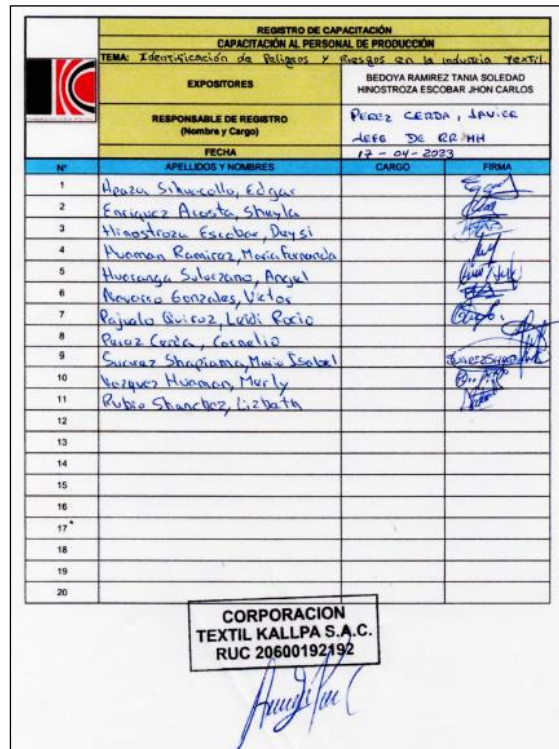 REGISTRO DE CAPACITACIÓN
CAPACITACIÓN AL PERSONAL DE PRODUCCIÓN
TEMA: Identificación de Peligros y Riesgos en la industria Textil
EXPOSITORES
BEDOYA RAMIREZ TANIA SOLEDAD
HINOSTROZA ESCOBAR JHON CARLOS
RESPONSABLE DE REGISTRO
(Nombre y Cargo)
PEREZ CERDA, JAVIER
JEFE DE RRHH
FECHA 17 - 04 - 2023
N° APELLIDOS Y NOMBRES CARGO FIRMA
1 Apaza Sihuacollo, Edgar
2 Enriquez Acosta, Sheyla
3 Hinostroza Escobar, Deysi
4 Huaman Ramirez, Maria Fernanda
5 Huaranga Solorzano, Angel
6 Navarro Gonzales, Victor
7 Pajualo Quiroz, Leidi Rocio
8 Perez Cerda, Cornelio
9 Suarez Shapiama, Maria Isabel
10 Vazquez Huaman, Merly
11 Rubio Shanchez, Lizbeth
12
13
14
15
16
17
18
19
20
CORPORACION
TEXTIL KALLPA S.A.C.
RUC 20600192192